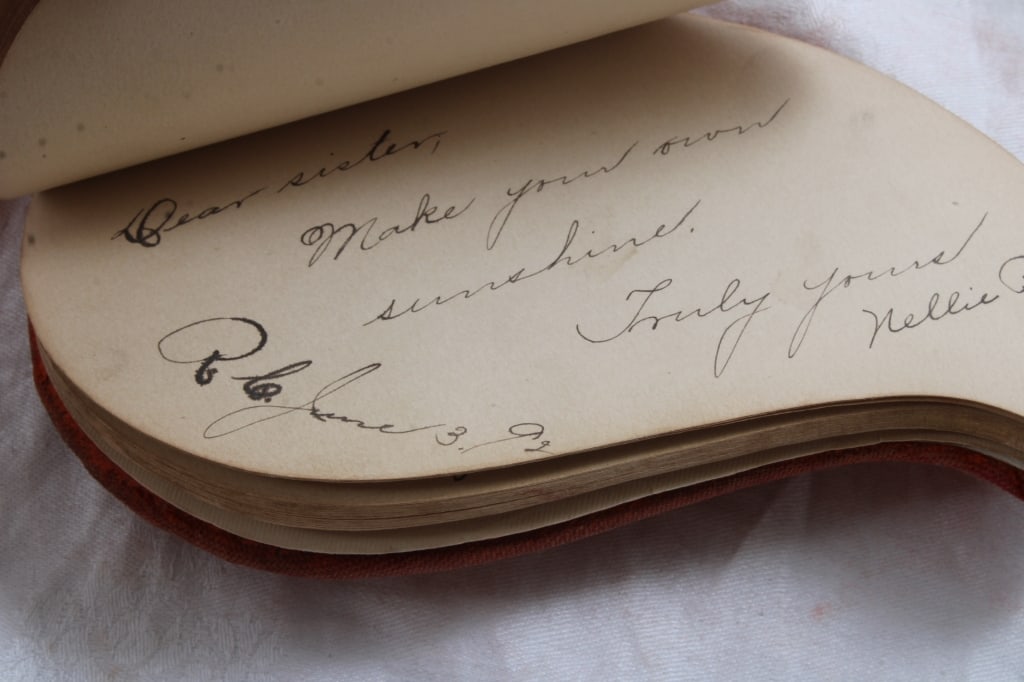 Dear sister,
Make your own
sunshine.
Truly yours
Nellie
June 3. 92